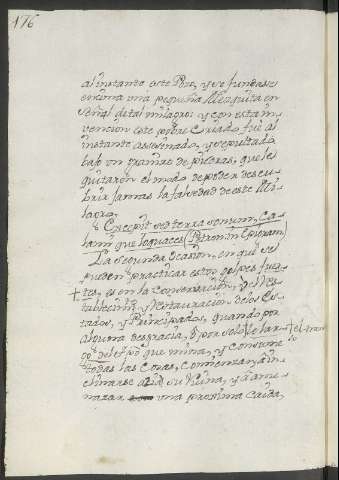 176
al instante este Pozo, y se fundase
encima una pequeña Mezquita en
Señal de tal milagro: y con esta in-
vencion este pobre Criado fue al
instante assesinado, y sepultado
bajo un granero de piedras, que le
quitaron el modo de poder descu-
brir jamas la falsedad de este Mi-
lagro.
Excepit sed terra sonum, Ca-
lami que loquaces
La segunda Ocasion, en que se
pueden practicar estos golpes fuer-
tes, es en la Conservacion, del Es-
tablecimto y Restauracion de los Es-
tados, y Principados, quando por
alguna desgracia, ò por solo el lar-
go del tpõ que mina, y consume
todas las Cosas, comienzan à in-
clinarse a su Ruina, y à ame-
nazar una proxima caida,